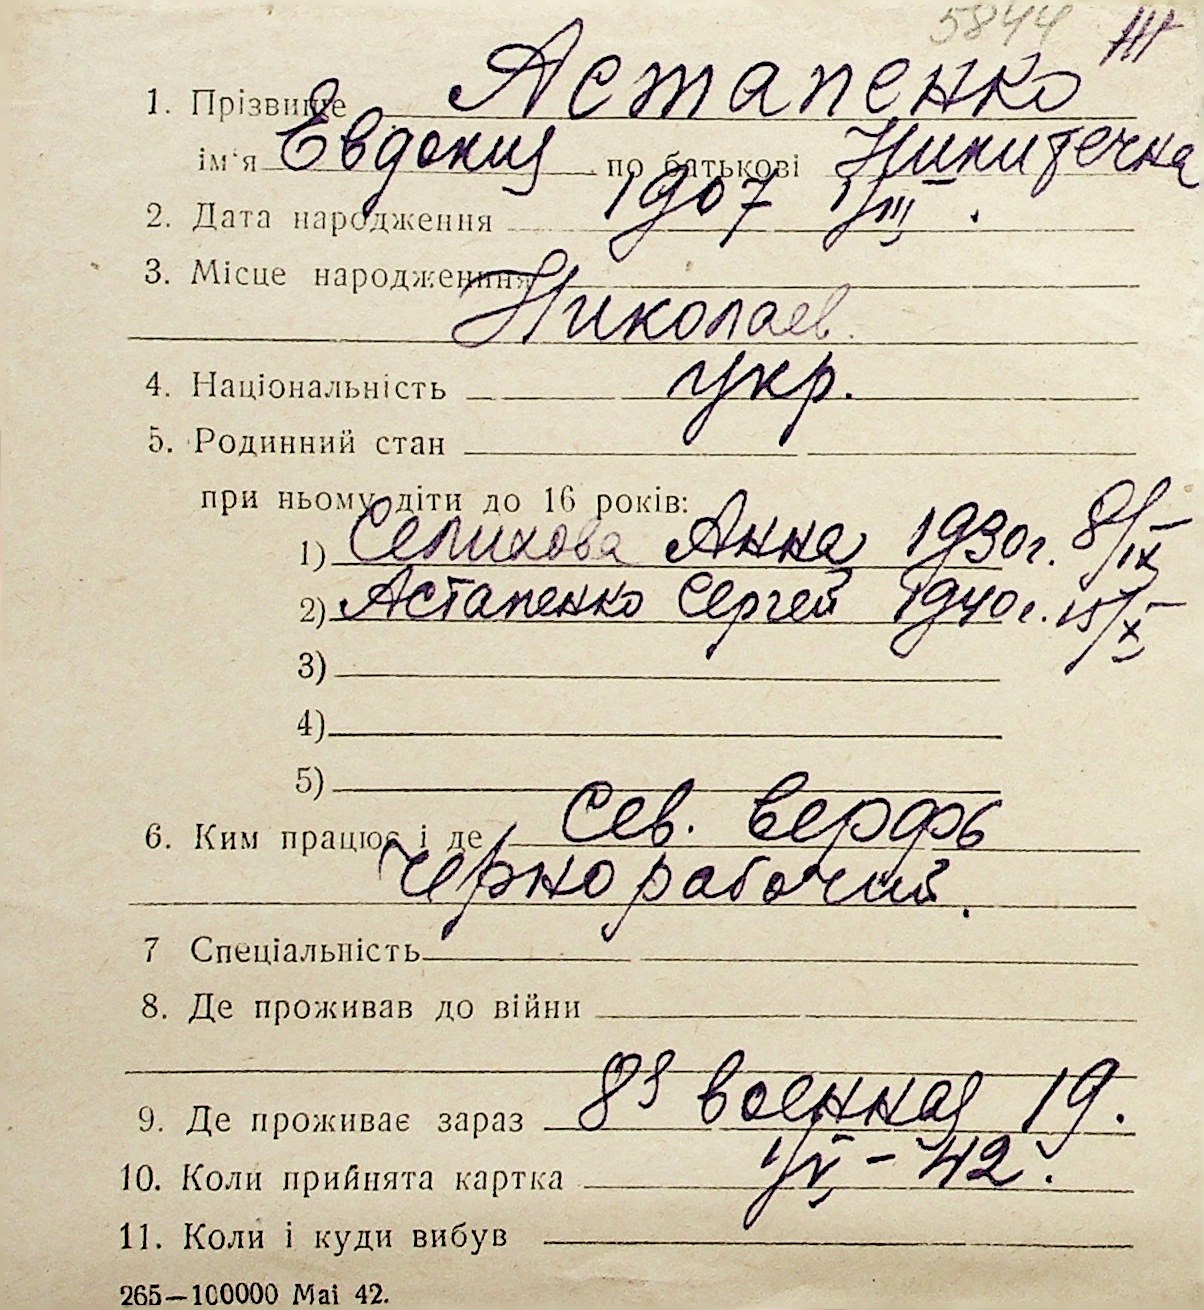 5844 III
1. Прізвище Астапенко
ім'я Евдокия по батькові Никитечна
2. Дата народження 1907 1/III.
3. Місце народження
Николаев.
4. Національність укр.
5. Родинний стан
при ньому діти до 16 років:
1) Селихова Анна 1930г. 8/IX
2) Астапенко Сергей 1940г. 15/X
3)
4)
5)
6. Ким працює і де Сев. верфь
Чернорабочий.
7 Спеціальність
8. Де проживав до війни
9. Де проживає зараз 8я военная 19.
10. Коли прийнята картка 1/V-42.
11. Коли і куди вибув
265—100000 Mai 42.